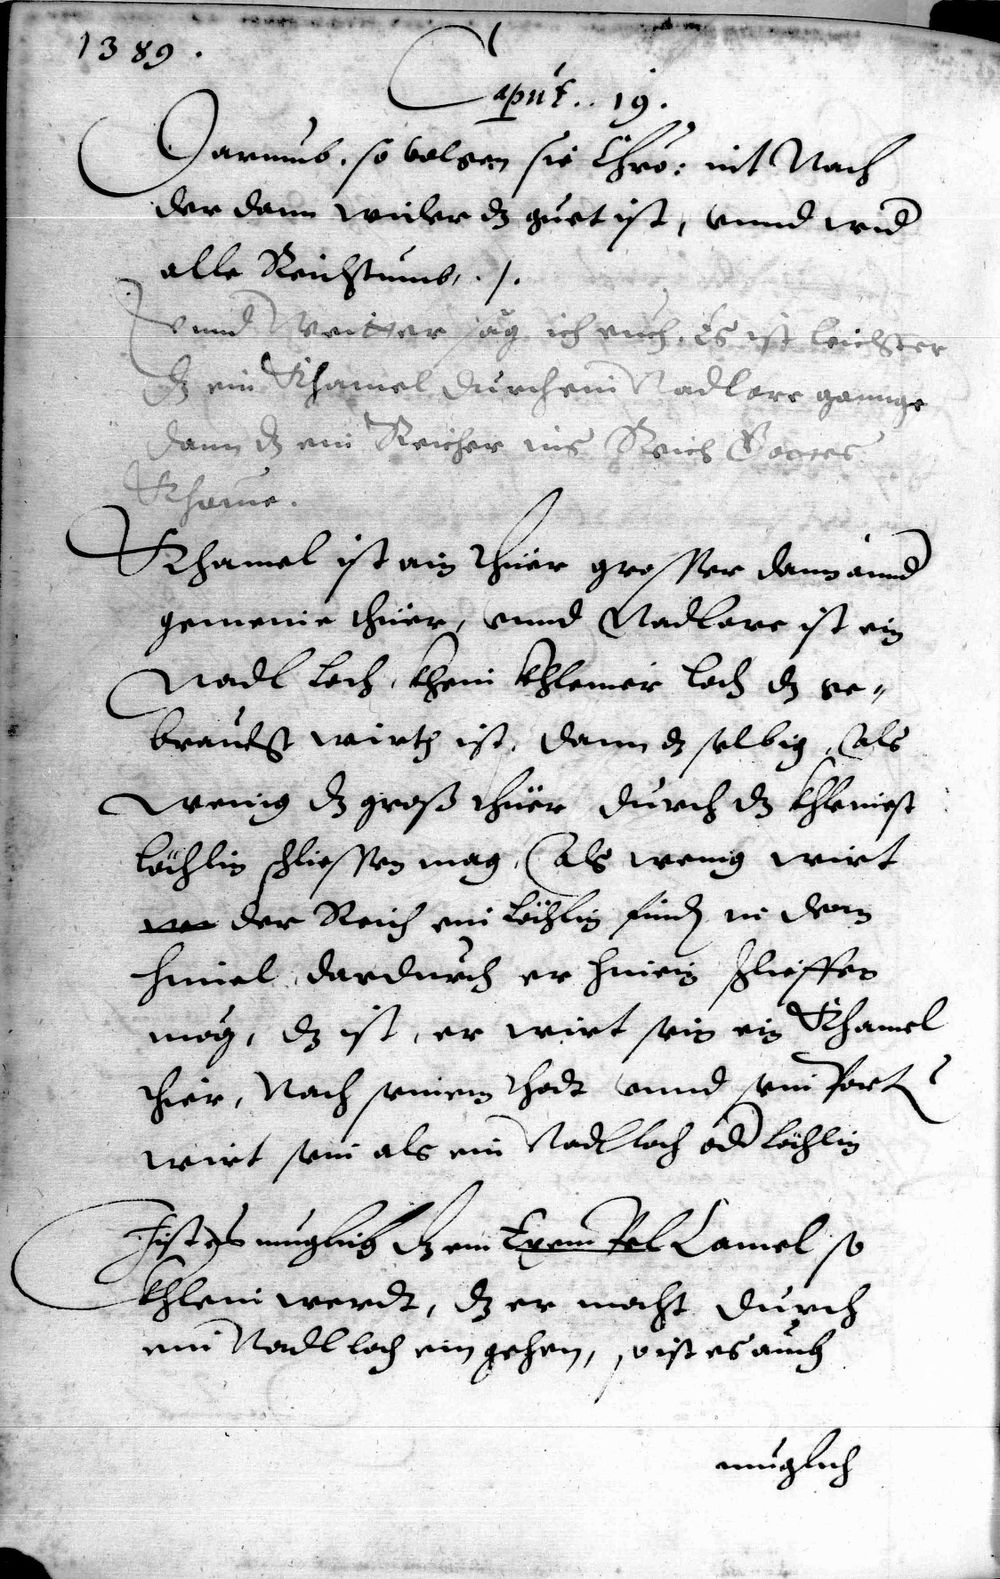 1389.
Caput.. 19.
Darumb. so volgen sie Chro: nit Nach
der dann wider dz guet ist, vnnd wid
alle Reichtumb, ./.
Vnnd Weitter sag ich euch. Es ist leichter
dz ein Khamel durch ein Nadlore gannge
dann dz ein Reicher ins Reich Gottes
Khome.
Khamel ist ain thier grosser dann annd
gemeine thier, vnnd Nadlore ist ein
Nadl loch, khein khleiner loch dz ge-
braucht wirth ist, dann dz selbig, Als
wenig dz groß thier durch dz khleinest
löchlin schlieffen mag, Als wenig wirt
der Reich ein löchlin finden in dem
himel dardurch er hinein schlieffen
mög, dz ist, er wirt sein ein Khamel
thier, Nach seinem thodt vnnd sein Port
wirt sein als ein Nadl loch od löchlin
Jst es muglich dz ein Exempel Camel so
khlein werdt, dz er mocht durch
ein Nadl loch ein gehen, so ist es auch
muglich